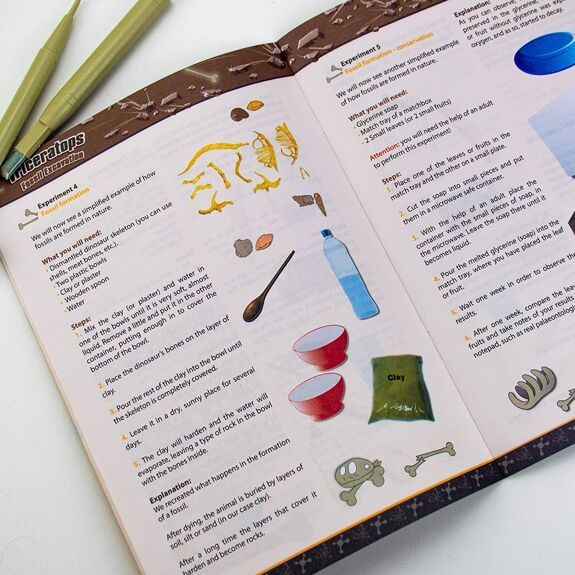 Triceratops
Fossil Excavation
Experiment 4
Fossil formation
We will now see a simplified example of how
fossils are formed in nature.
What you will need:
· Dismantled dinosaur skeleton (you can use
shells, meat bones, etc.).
· Two plastic bowls
· Clay or plaster
· Wooden spoon
· Water
Steps:
1. Mix the clay (or plaster) and water in
one of the bowls until it is very soft, almost
liquid. Remove a little and put it in the other
container, putting enough in to cover the
bottom of the bowl.
2. Place the dinosaur's bones on the layer of
clay.
3. Pour the rest of the clay into the bowl until
the skeleton is completely covered.
4. Leave it in a dry, sunny place for several
days.
5. The clay will harden and the water will
evaporate, leaving a type of rock in the bowl
with the bones inside.
Explanation:
We recreated what happens in the formation
of a fossil.
After dying, the animal is buried by layers of
soil, silt or sand (in our case clay).
After a long time the layers that cover it
harden and become rocks.
Clay
Experiment 5
Fossil formation - conservation
We will now see another simplified example
of how fossils are formed in nature.
What you will need:
· Glycerine soap
· Match tray of a matchbox
· 2 Small leaves (or 2 small fruits)
Attention: you will need the help of an adult
to perform this experiment!
Steps:
1. Place one of the leaves or fruits in the
match tray and the other on a small plate.
2. Cut the soap into small pieces and put
them in a microwave safe container.
3. With the help of an adult place the
container with the small pieces of soap, in
the microwave. Leave the soap there until it
becomes liquid.
4. Pour the melted glycerine (soap) into the
match tray, where you have placed the leaf
or fruit.
5. Wait one week in order to observe the
results.
6. After one week, compare the
fruits and take notes of your results
notepad, such as real
Explanation:
As you can observe,
preserved in the glycerine,
or fruit without glycerine was
oxygen, and so, started to decay.